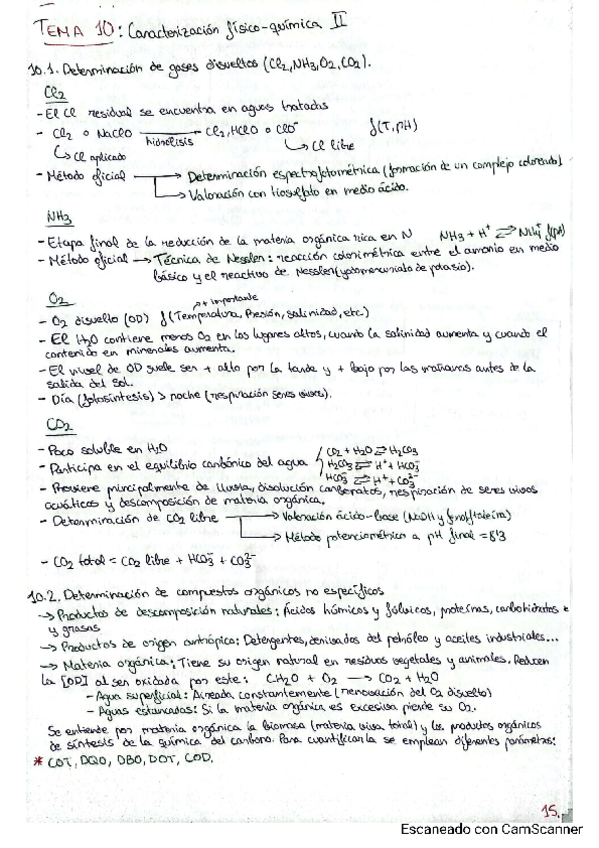 TEMA 10: Caracterización físico-química II
10.1. Determinación de gases disueltos (Cl2, NH3, O2, CO2).
Cl2
- El Cl residual se encuentra en aguas tratadas
- Cl2 o NaClO hidrólisis → Cl2, HClO o ClO⁻ f(T, pH)
↳ Cl aplicado ↳ Cl libre
- Método oficial → Determinación espectrofotométrica (formación de un complejo coloreado)
→ Valoración con tiosulfato en medio ácido.
NH3
- Etapa final de la reducción de la materia orgánica rica en N NH3 + H⁺ ⇌ NH4⁺ f(pH)
- Método oficial → Técnica de Nessler: reacción colorimétrica entre el amonio en medio
básico y el reactivo de Nessler (yodomercuriato de potasio).
O2
→ + importante
- O2 disuelto (OD) f(Temperatura, Presión, salinidad, etc)
- El H2O contiene menos O2 en los lugares altos, cuando la salinidad aumenta y cuando el
contenido en minerales aumenta.
- El nivel de OD suele ser + alto por la tarde y + bajo por las mañanas antes de la
salida del sol.
- Día (fotosíntesis) > noche (respiración seres vivos).
CO2
- Poco soluble en H2O
- Participa en el equilibrio carbónico del agua
CO2 + H2O ⇌ H2CO3
H2CO3 ⇌ H⁺ + HCO3⁻
HCO3⁻ ⇌ H⁺ + CO3²⁻
- Proviene principalmente de lluvia, disolución carbonatos, respiración de seres vivos
acuáticos y descomposición de materia orgánica.
- Determinación de CO2 libre → Valoración ácido-base (NaOH y fenolftaleína)
→ Método potenciométrico a pH final = 8'3
- CO2 total = CO2 libre + HCO3⁻ + CO3²⁻
10.2. Determinación de compuestos orgánicos no específicos
→ Productos de descomposición naturales: Ácidos húmicos y fúlvicos, proteínas, carbohidratos
y grasas
→ Productos de origen antrópico: Detergentes, derivados del petróleo y aceites industriales...
→ Materia orgánica: Tiene su origen natural en residuos vegetales y animales. Reducen
la [OD] al ser oxidada por este: CH2O + O2 → CO2 + H2O
- Agua superficial: Aireada constantemente (renovación del O2 disuelto)
- Aguas estancadas: Si la materia orgánica es excesiva pierde su O2.
Se entiende por materia orgánica la biomasa (materia viva total) y los productos orgánicos
de síntesis de la química del carbono. Para cuantificarla se emplean diferentes parámetros:
* COT, DQO, DBO, DOT, COD.
15.
Escaneado con CamScanner